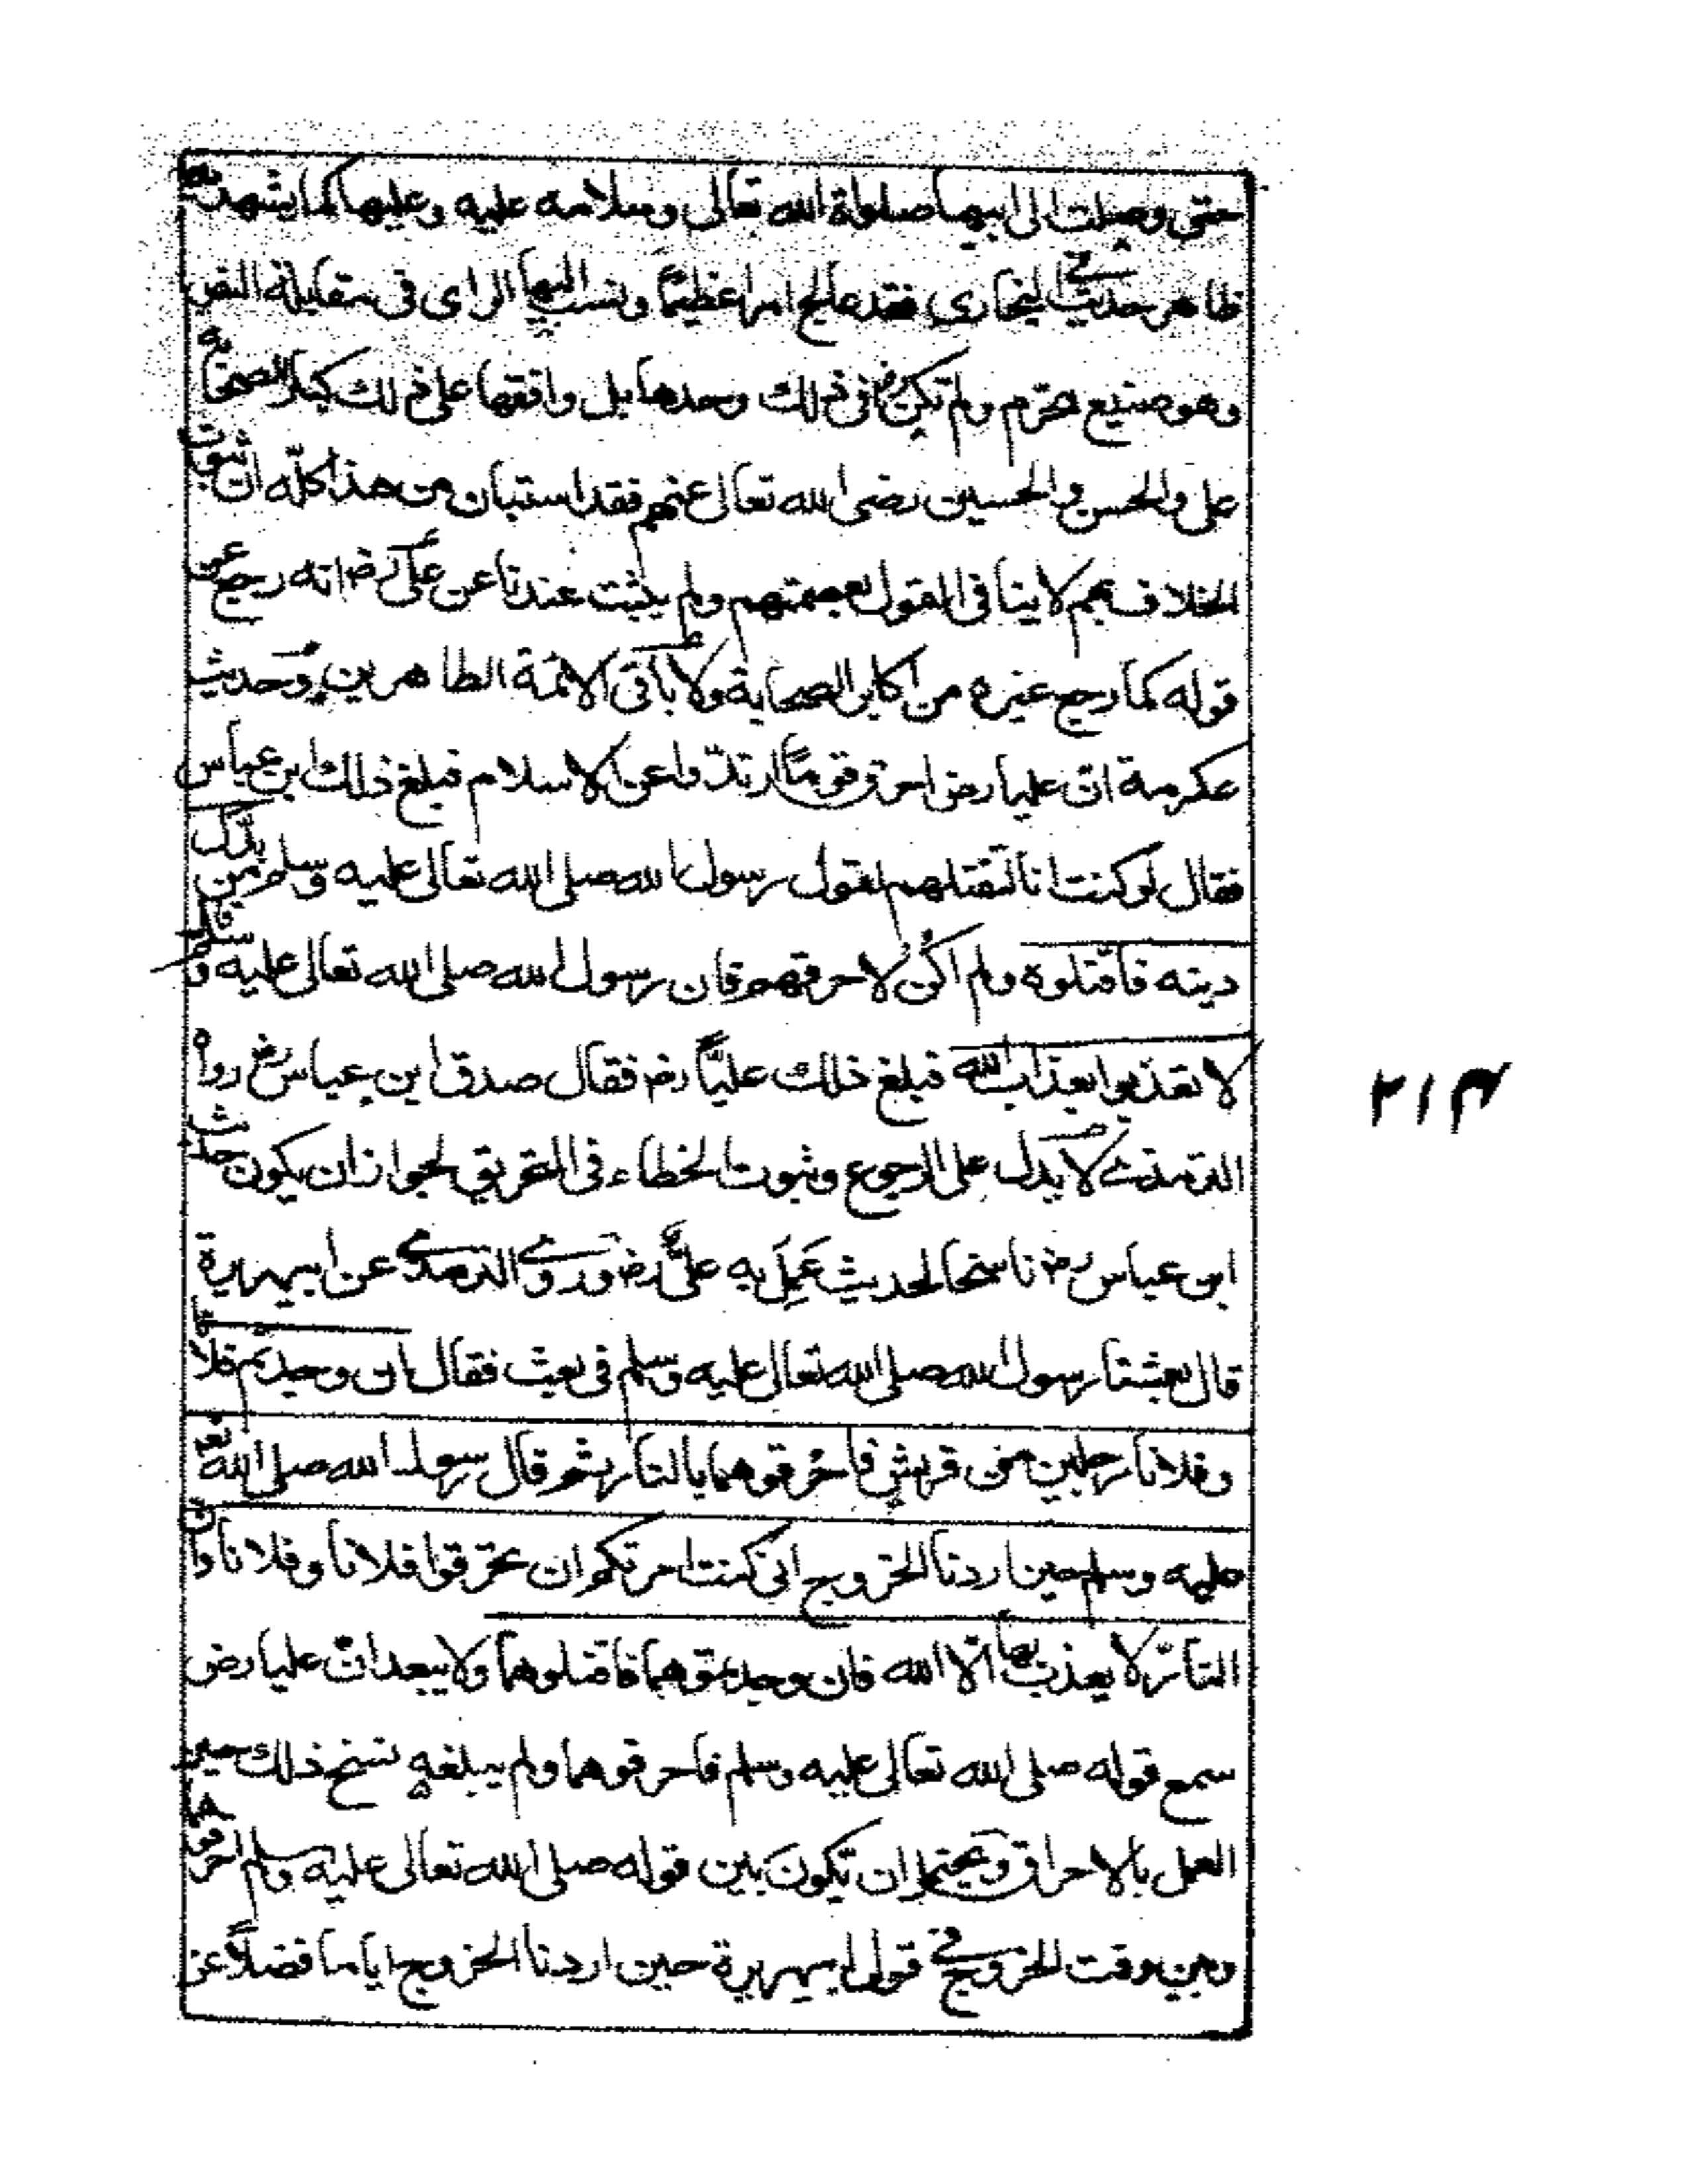 حتى وصلت الى ابيها صلواة الله تعالى وسلامه عليه وعليها كما يشهد به
ظاهر حديث البخارى فقد عالج امرا عظيمًا ونسب اليها الراى فى مقابلة النص
وهو صنيع محرم ولم تكن رض فى ذلك وحدها بل وافقها على ذلك كبار الصحابة
على والحسن والحسين رضى الله تعالى عنهم فقد استبان من هذا كلّه ان ثبوت
الخلاف بهم لا ينافى القول بعصمتهم ولم يثبت عندنا عن علىّ رض انه رجع عن
قوله كما رجع غيره من اكابر الصحابة ولا باقى الائمة الطاهرين وحديث
عكرمة انّ عليا رض احرق قومًا ارتدّوا عن الاسلام فبلغ ذلك ابن عباس
فقال لو كنت انا لقتلهم لقول رسول الله صلى الله تعالى عليه وسلم من بدّل
دينه فاقتلوه ولم اكن لاحرقهم فان رسول الله صلى الله تعالى عليه وسلم قال
لا تعذبوا بعذاب الله فبلغ ذلك عليًّا رض فقال صدق ابن عباس رض رواه
الترمذى لا يدل على الرجوع وثبوت الخطاء فى التحريق لجواز ان يكون حديث
ابن عباس رض ناسخا لحديث عَمِلَ به علىٌّ رض وروى الترمذى عن ابيهريرة
قال بعثنا رسول الله صلى الله تعالى عليه وسلم فى بعث فقال ان وجدتم فلانا
وفلانا رجلين من قريش فاحرقوهما بالنار ثم قال رسول الله صلى الله تعـ
عليه وسلم حين اردنا الخروج انى كنت امرتكم ان تحرقوا فلانا وفلانا وان
النار لا يعذب بها الّا الله فان وجدتموهما فاقتلوهما ولا يبعد ان عليا رض
سمع قوله صلى الله تعالى عليه وسلم فاحرقوهما ولم يبلغه نسخ ذلك حين
العمل بالاحراق ويحتمل ان تكون بين قوله صلى الله تعالى عليه وسلم احرقوهما
وبين وقت الخروج فى قول ابيهريرة حين اردنا الخروج اياما فضلًا عن
۲۱۳